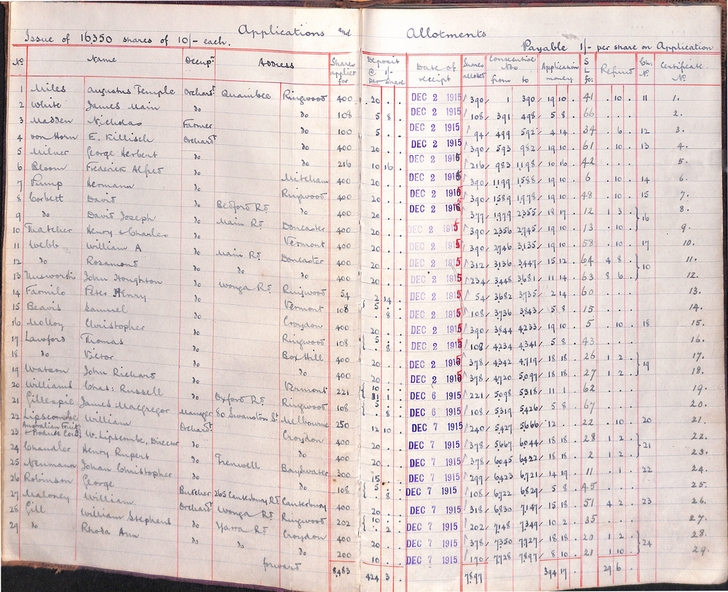 Applications and Allotments
Issue of 16350 shares of 10/- each. Payable 1/- per share on Application
No Name Occupn Address Shares applied for Deposit @ 1/- per share Date of receipt Shares allotted Consecutive Nos from to Application money S L Fo. Refund Certificate No
1 Miles Augustus Temple Orchardt Ringwood 400 20 DEC 2 1915 390 1 390 19 10 41 10 11 1.
2 White James Main do do 108 5 8 DEC 2 1915 108 391 498 5 8 66 2.
3 Madden Nicholas Farmer do 100 5 DEC 2 1915 94 499 592 4 14 34 6 12 3.
4 von Horn E. Killisch Orchardt do 400 20 DEC 2 1915 390 593 982 19 10 61 10 13 4.
5 Milner George Herbert do do 216 10 16 DEC 2 1915 216 983 1198 10 16 42 5.
6 Bloom Frederick Alfred do Mitcham 400 20 DEC 2 1915 390 1199 1588 19 10 6 10 14 6.
7 Hermann do Ringwood 400 20 DEC 2 1915 390 1589 1978 19 10 48 10 15 7.
8 Corbett David do Bedford Rd do 400 20 DEC 2 1915 377 1979 2355 18 17 12 1 3 16 8.
9 do David Joseph do Main Rd Doncaster 400 20 DEC 2 1915 390 2356 2745 19 10 13 10 9.
10 Thatcher Henry & Charles do Vermont 400 20 DEC 2 1915 390 2746 3135 19 10 58 10 17 10.
11 Webb William A do Main Rd Doncaster 400 20 DEC 2 1915 312 3136 3447 15 12 64 4 8 10 11.
12 do Rosamont do do do 400 20 DEC 2 1915 234 3448 3681 11 14 63 8 6 12.
13 John Houghton do Wonga Rd Ringwood 54 2 14 DEC 2 1915 54 3682 3735 2 14 60 13.
14 Peter Henry do Vermont 108 5 8 DEC 2 1915 108 3736 3843 5 8 15 14.
15 Beavis Samuel do Croydon 400 20 DEC 2 1915 390 3844 4233 19 10 5 10 18 15.
16 Molloy Christopher do Ringwood 108 5 8 DEC 2 1915 108 4234 4341 5 8 43 16.
17 Lawford Thomas do Box Hill 400 20 DEC 2 1915 378 4342 4719 18 18 26 1 2 19 17.
18 do Victor do do 400 20 DEC 2 1915 378 4720 5097 18 18 27 1 2 18.
19 Watson John Richard do Vermont 221 11 1 DEC 6 1915 221 5098 5318 11 1 62 19.
20 Williams Chas. Russell do Oxford Rd Ringwood 108 5 8 DEC 6 1915 108 5319 5426 5 8 67 20.
21 Gillespie James Macgregor Manager 80 Swanston St Melbourne 250 12 10 DEC 7 1915 240 5427 5666 12 22 10 20 21.
22 Lipscombe William Orchardt Croydon 400 20 DEC 7 1915 378 5667 6044 18 18 28 1 2 21 22.
23 Australian Fruit & Produce Co W. Lipscombe, Director do 400 20 DEC 7 1915 378 6045 6422 18 18 2 1 2 23.
24 Chandler Henry Rupert do Bayswater 300 15 DEC 7 1915 299 6423 6721 14 19 11 1 22 24.
25 Neumann Johan Christopher do do 108 5 8 DEC 7 1915 108 6722 6829 5 8 45 25.
26 Robinson George Butcher 265 Canterbury Rd Canterbury 400 20 DEC 7 1915 318 6830 7147 15 18 51 4 2 23 26.
27 Maloney William Orchardt Wonga Rd Ringwood 202 10 2 DEC 7 1915 202 7148 7349 10 2 35 27.
28 Gill William Stephens do Yarra Rd Croydon 400 20 DEC 7 1915 378 7350 7727 18 18 20 1 2 24 28.
29 do Rhoda Ann do do do 200 10 DEC 7 1915 170 7728 7897 8 10 21 1 10 29.
forward 8483 424 3 7897 394 17 29 6